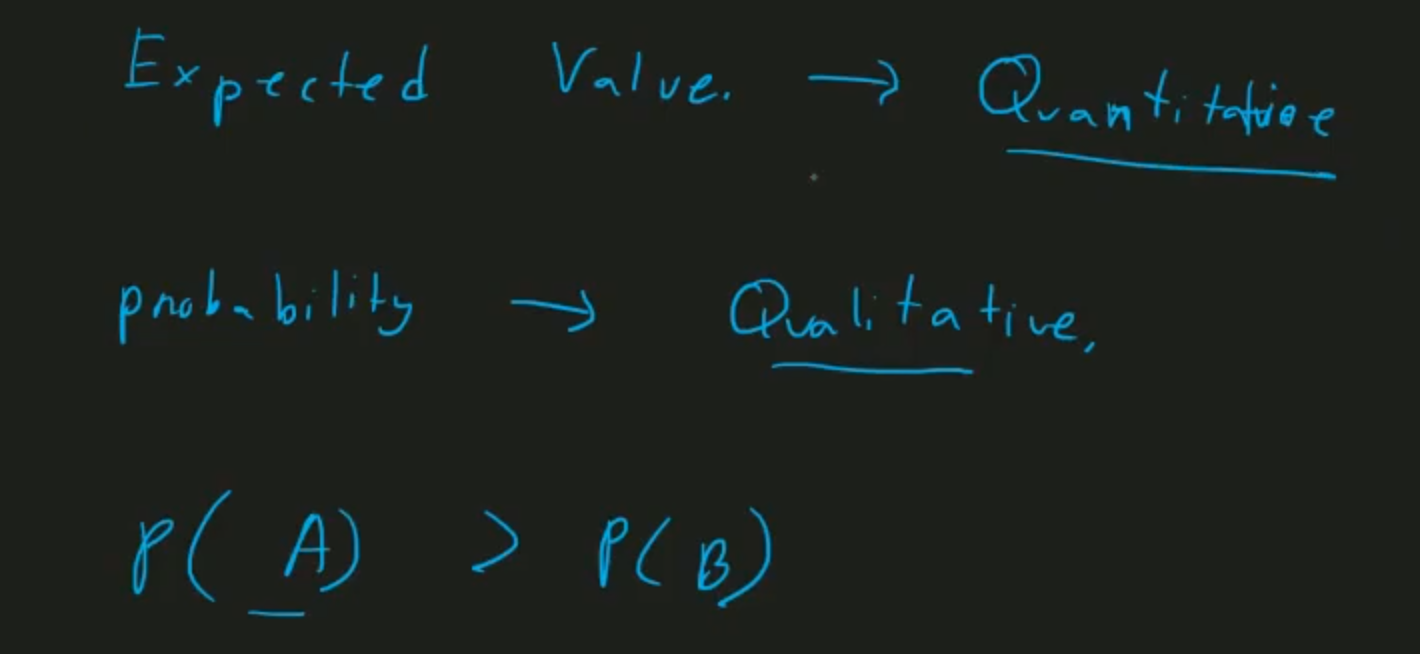 Expected Value. → Quantitative
probability → Qualitative,
P( A) > P(B)